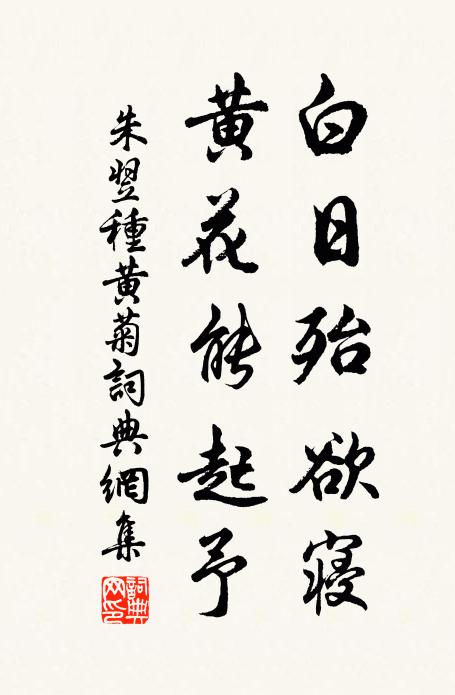 白日殆欲寝
黄花能起予
朱翌種黄菊詞典網集
詞典网印